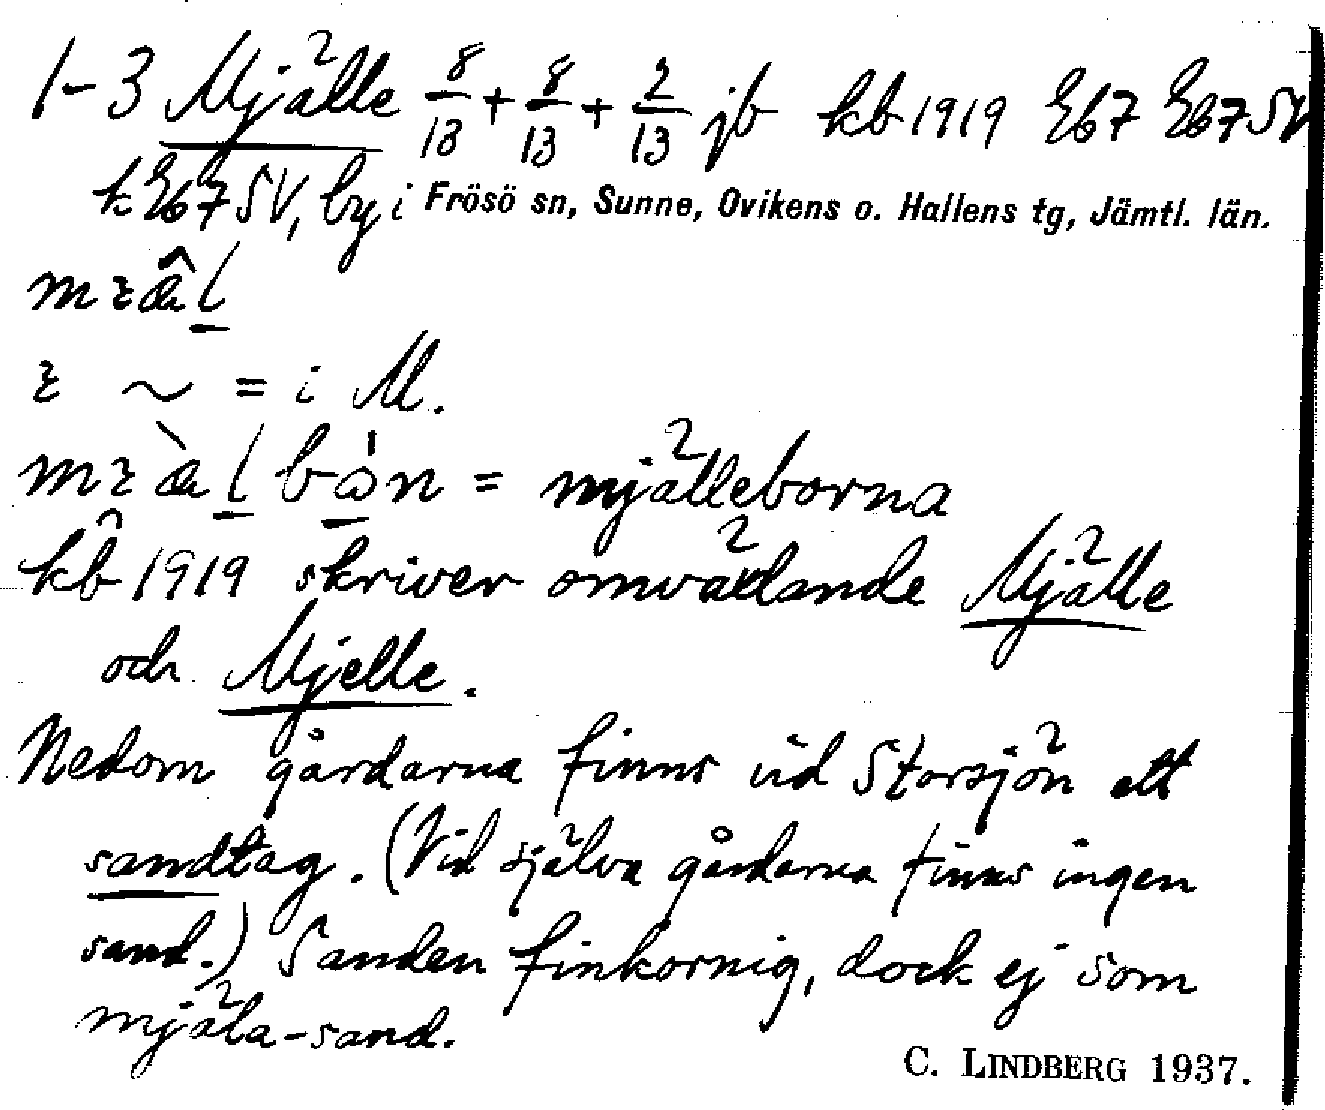 1-3 Mjälle 8/13 + 8/13 + 2/13 jb kb 1919 Eb7 Eb7SV
k Eb7SV, by i Frösö sn, Sunne, Ovikens o. Hallens tg, Jämtl. län.
~ = i M.
= mjälleborna
kb 1919 skriver omväxlande Mjälle
och Mjelle.
Nedom gårdarna finns vid Storsjön ett
sandtag. (Vid själva gårdarna finns ingen
sand.) Sanden finkornig, dock ej som
mjäla-sand.
C. LINDBERG 1937.